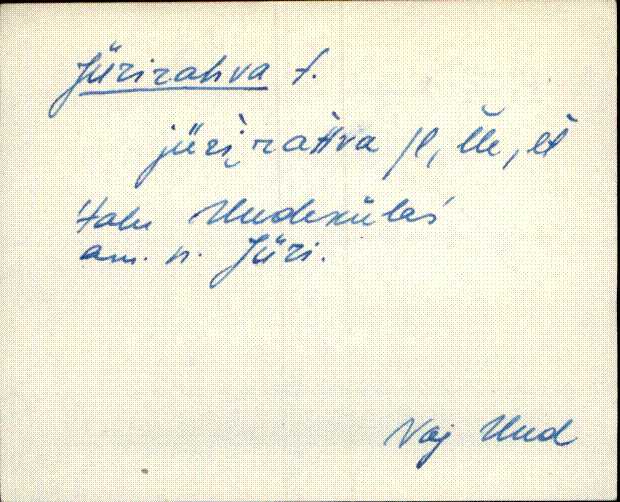 Jürirahva t.
jüriraHva /l, lle, lt
Talu Uudeküläs
am. n. Jüri.
Vaj Uud